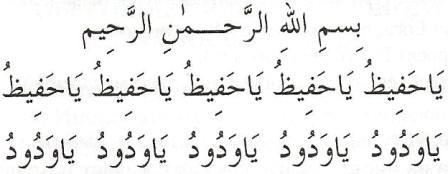 بِسمِ اللهِ الرَّحـــمٰنِ الرَّحِيم
يَاحَفِيظُ يَاحَفِيظُ يَاحَفِيظُ يَاحَفِيظُ يَاحَفِيظُ
يَاوَدُودُ يَاوَدُودُ يَاوَدُودُ يَاوَدُودُ يَاوَدُودُ